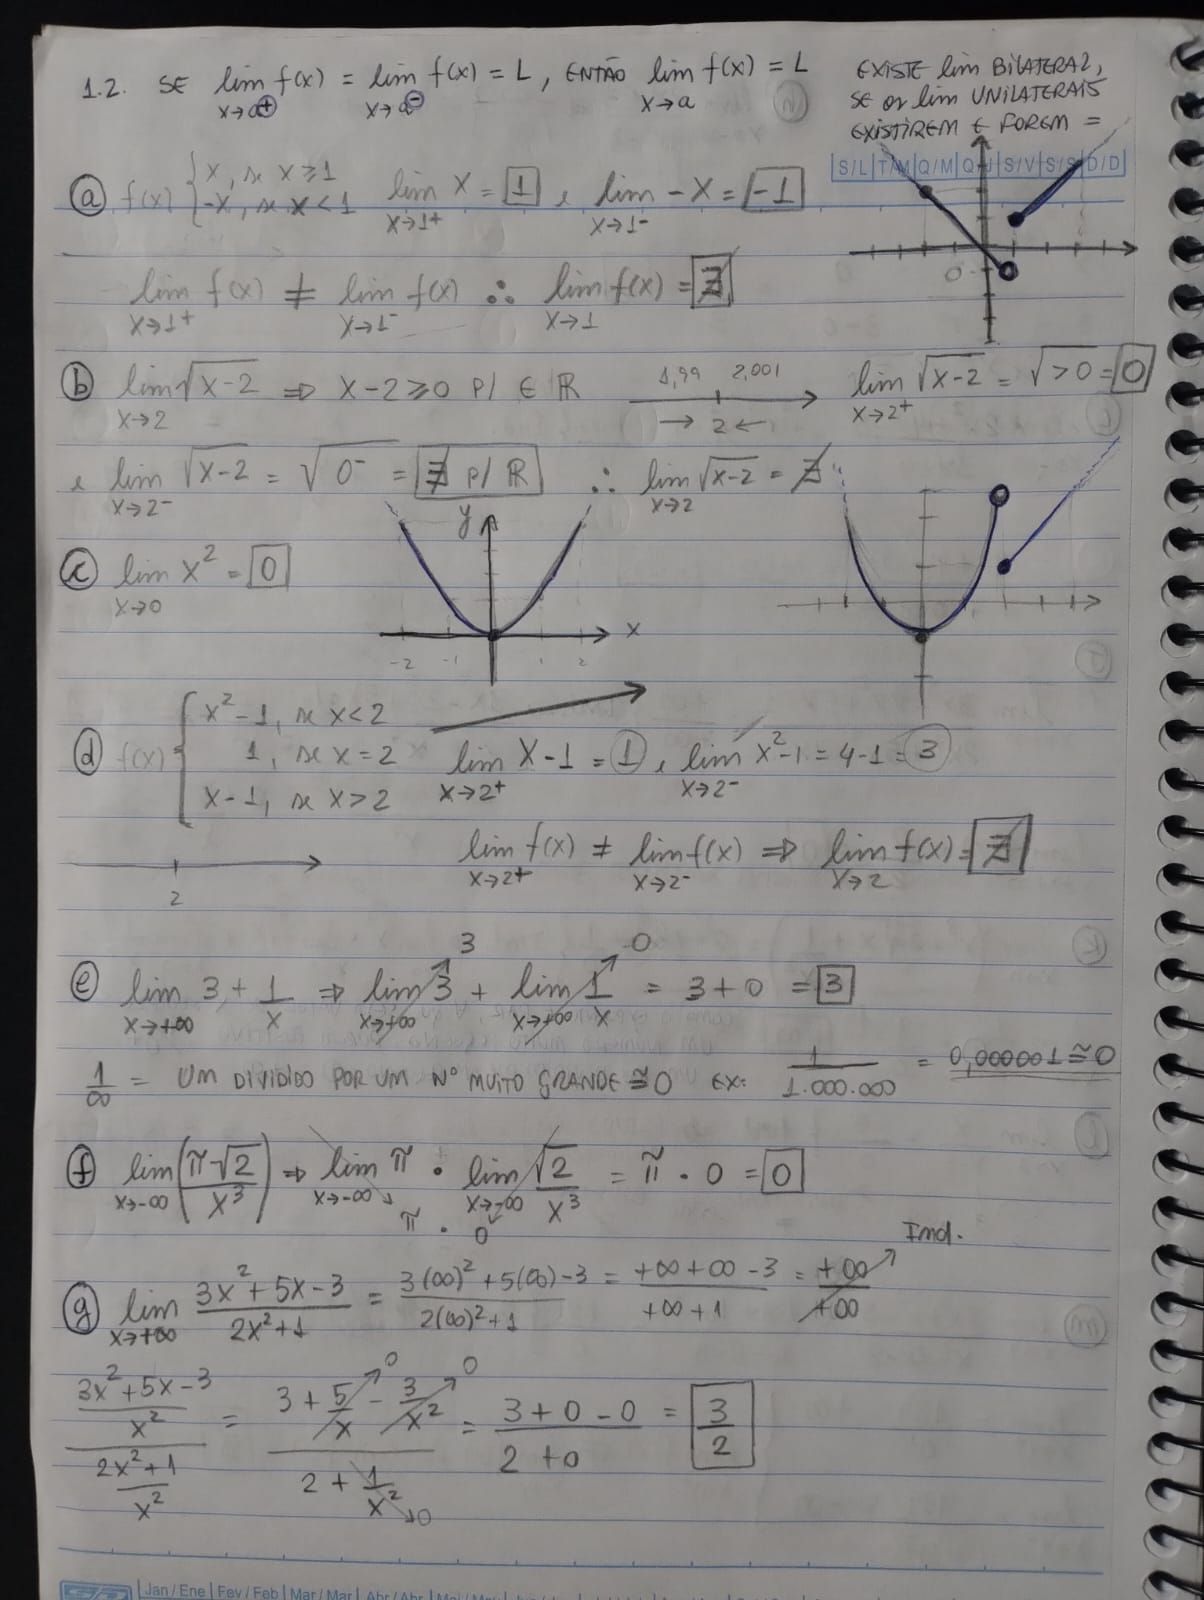 1.2. SE lim x→a⁺ f(x) = lim x→a⁻ f(x) = L, ENTÃO lim x→a f(x) = L
EXISTE lim BILATERAL,
SE os lim UNILATERAIS
EXISTIREM E FOREM =
S/L T/M Q/M Q/J S/V S/S D/D
(a) f(x) { x, se x ≥ 1
-x, se x < 1 lim x→1⁺ x = 1 e lim x→1⁻ -x = -1
lim x→1⁺ f(x) ≠ lim x→1⁻ f(x) ∴ lim x→1 f(x) = ∄
0
(b) lim x→2 √(x-2) ⇒ x-2 ≥ 0 p/ ∈ ℝ 1,99 2,001 → 2 ← lim x→2⁺ √(x-2) = √(>0) = 0
e lim x→2⁻ √(x-2) = √(0⁻) = ∄ p/ ℝ ∴ lim x→2 √(x-2) = ∄
y
(c) lim x→0 x² = 0
x
-2 -1 1 2
(d) f(x) { x²-1, se x < 2
1, se x = 2
x-1, se x > 2
lim x→2⁺ x-1 = 1 e lim x→2⁻ x²-1 = 4-1 = 3
lim x→2⁺ f(x) ≠ lim x→2⁻ f(x) ⇒ lim x→2 f(x) = ∄
2
3 0
(e) lim x→+∞ 3 + 1/x ⇒ lim x→+∞ 3 + lim x→+∞ 1/x = 3+0 = 3
1/∞ = UM DIVIDIDO POR UM Nº MUITO GRANDE ≅ 0 EX: 1/1.000.000 = 0,000001 ≅ 0
(f) lim x→-∞ (π√2/x³) ⇒ lim x→-∞ π · lim x→-∞ √2/x³ = π · 0 = 0
π · 0
Ind.
(g) lim x→+∞ (3x²+5x-3)/(2x²+1) = (3(∞)²+5(∞)-3)/(2(∞)²+1) = (+∞+∞-3)/(+∞+1) = +∞/+∞
((3x²+5x-3)/x²)/((2x²+1)/x²) = (3 + 5/x - 3/x²)/(2 + 1/x²) = (3+0-0)/(2+0) = 3/2
0 0
0
Jan/Ene Fev/Feb Mar/Mar Abr/Abr